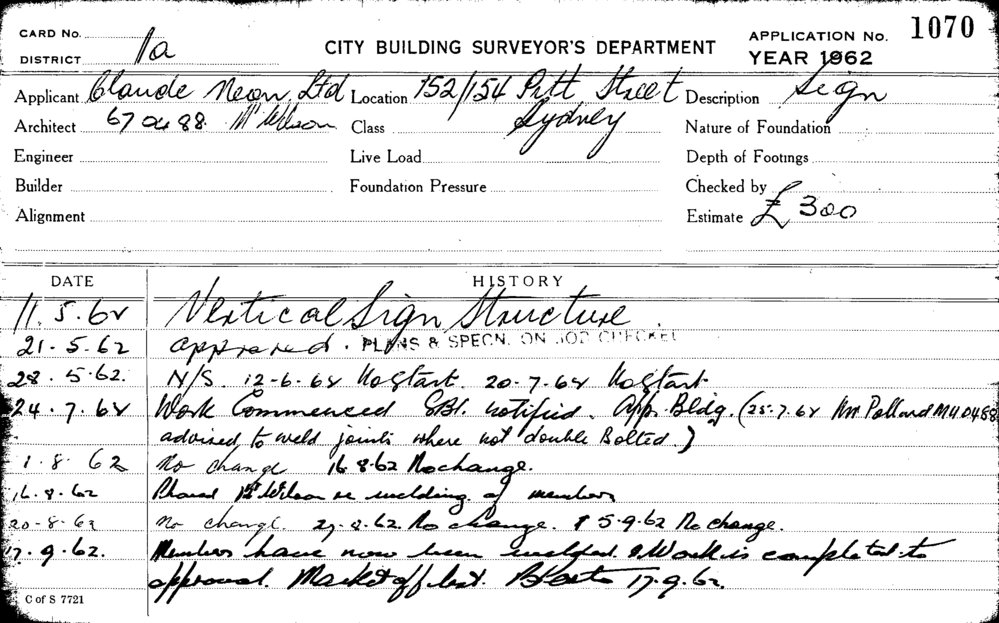 CARD No.
DISTRICT 1a
CITY BUILDING SURVEYOR'S DEPARTMENT
APPLICATION No. 1070
YEAR 1962
Applicant Claude Neon Ltd Location 152/154 Pitt Street Description Sign
Architect 670488 Mr Wilson Class Sydney Nature of Foundation
Engineer Live Load Depth of Footings
Builder Foundation Pressure Checked by
Alignment Estimate £ 300
DATE HISTORY
11.5.62 Vertical Sign Structure.
21-5-62 approved. PLANS & SPECN. ON JOB CHECKED
28.5.62. N/S. 12-6-62 No Start. 20-7-62 No Start
24.7.62 Work Commenced notified. App. Bldg. (25.7.62 Mr Pollard MU0488
advised, to weld joints where not double Bolted.)
1.8.62 No change 16 8.62 No change.
16.8.62 Phoned Mr Wilson re welding of members
20-8-62 no change. 27.8.62. No change. & 5-9.62 No change.
17.9.62. Members have now been welded. & Work is completed to
approval. 17.9.62.
C of S 7721